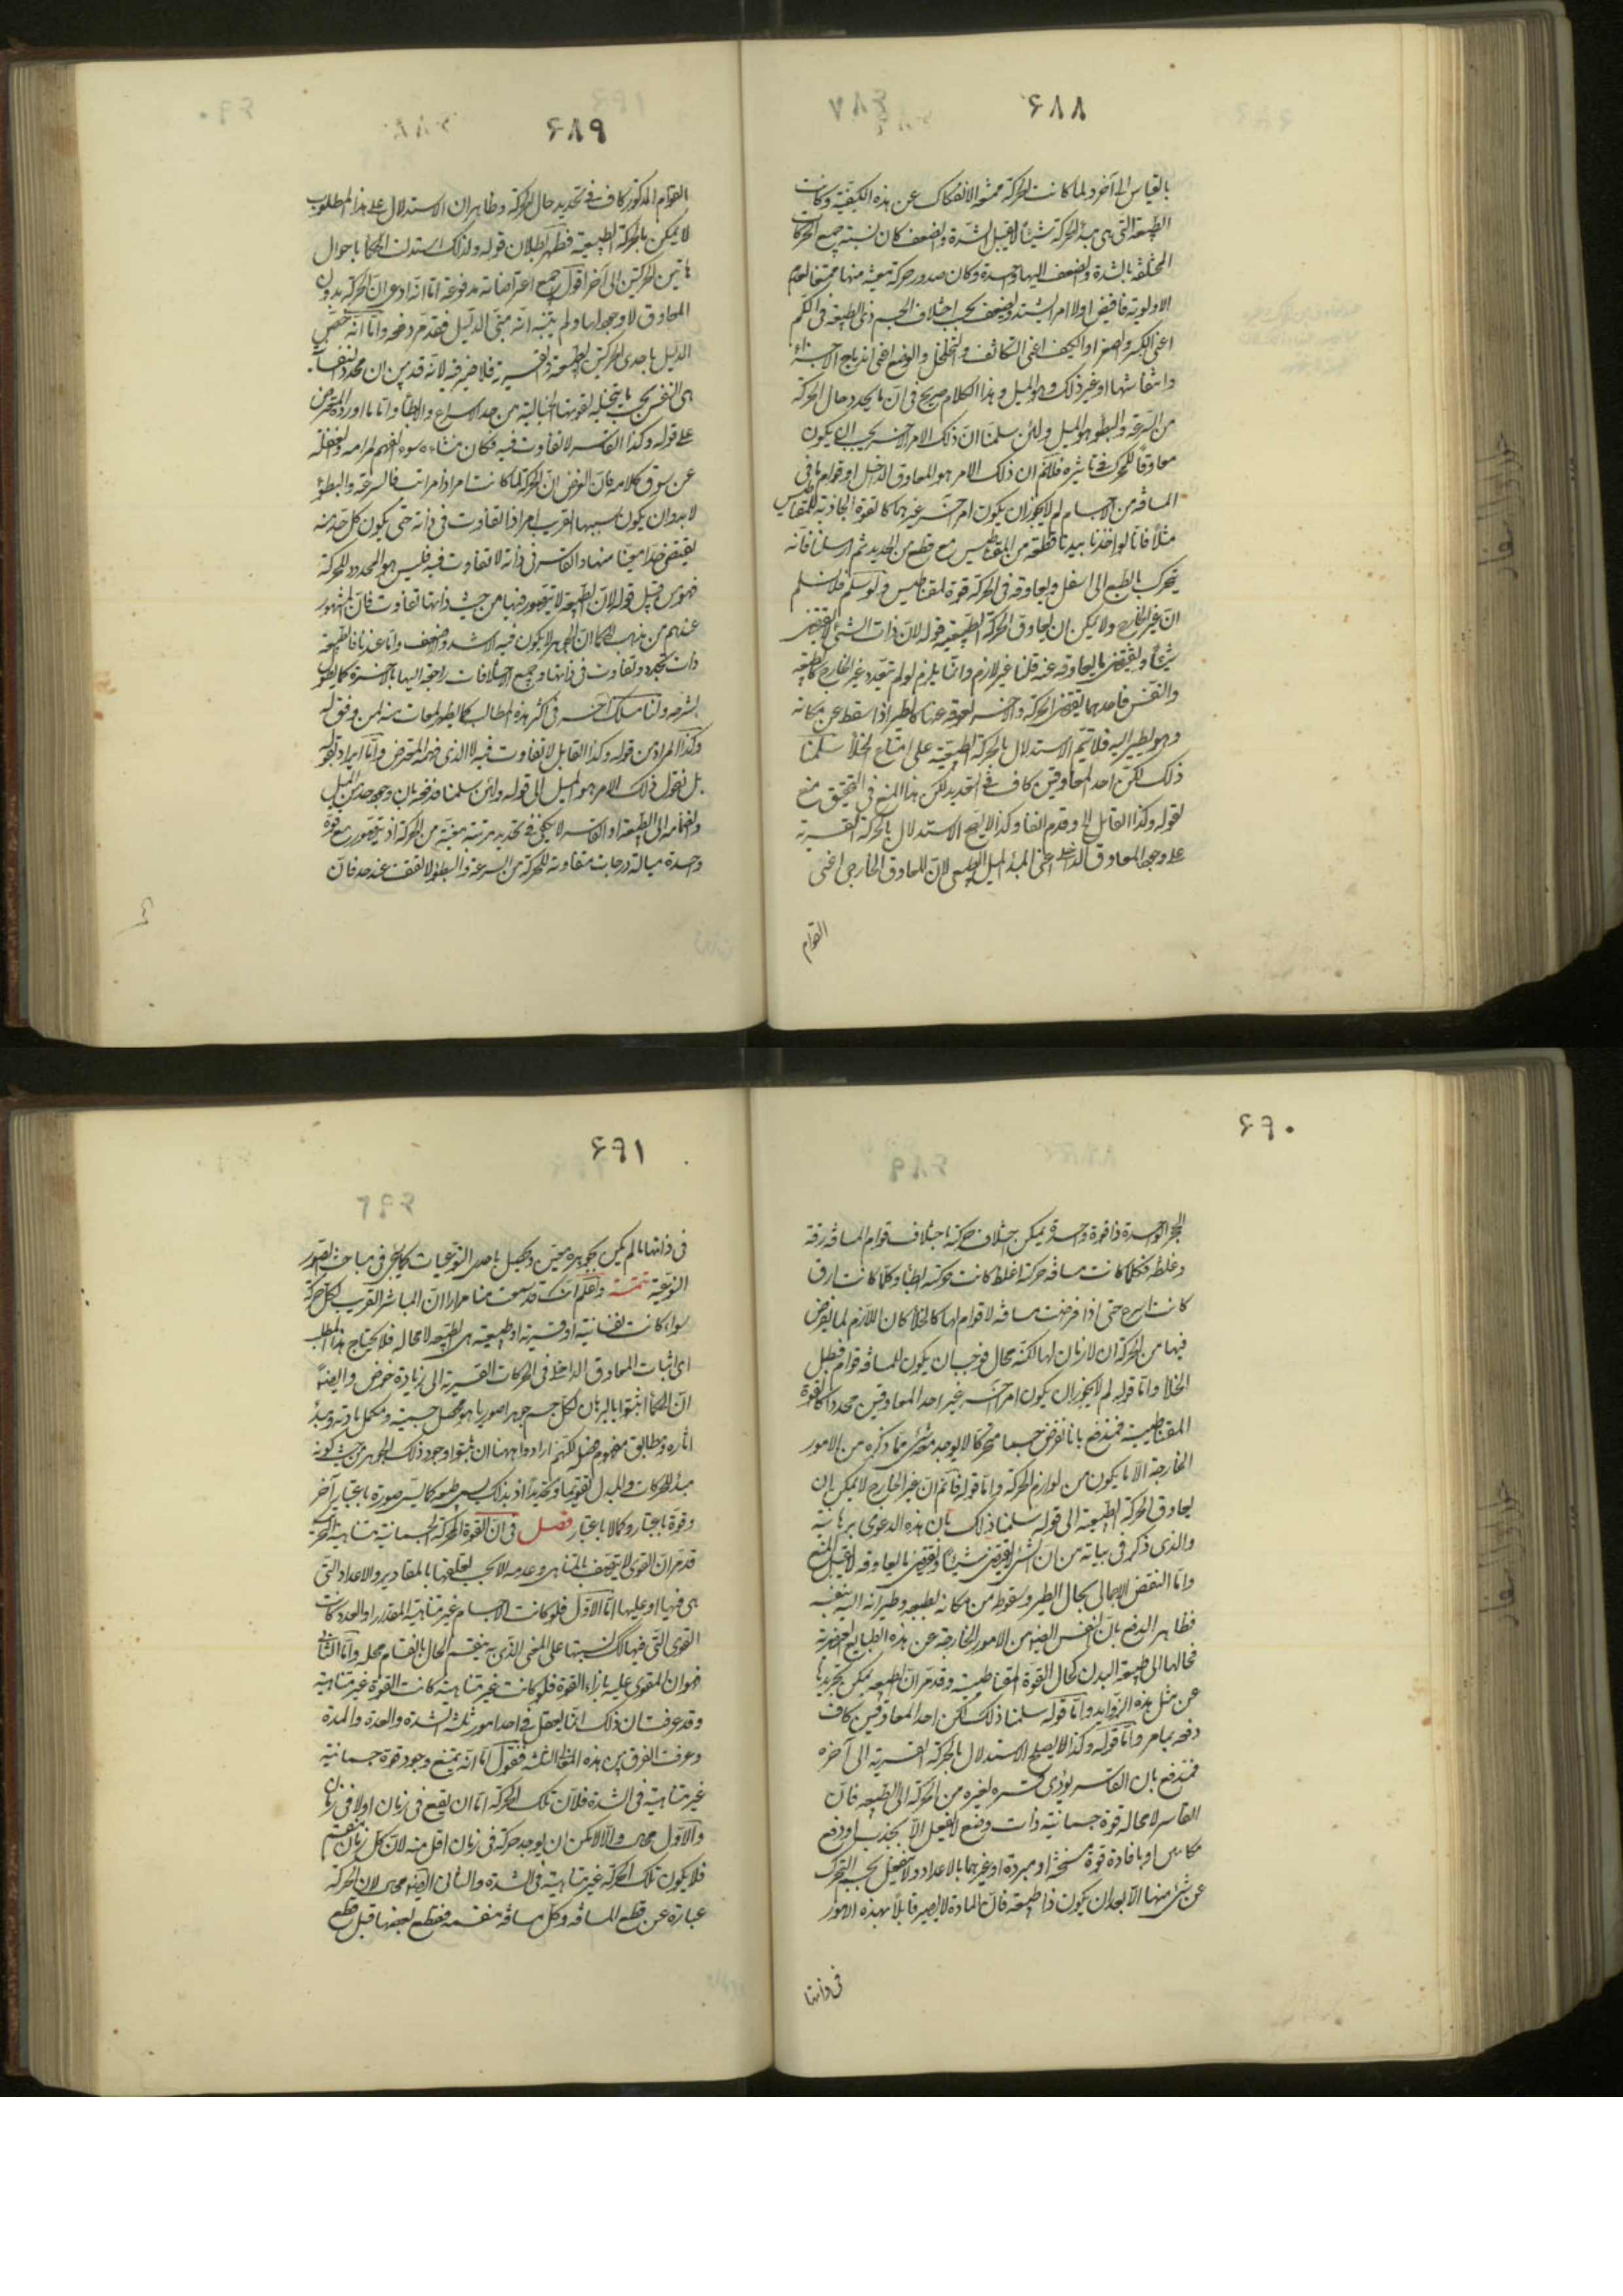 ۶۸۸
بالقياس الى آخر ولما كانت الحركة ممتنعة الانفكاك عن هذه الكيفية وكانت
الطبيعة التى هى مبدأ الحركة شيئا لا يقبل الشدة والضعف كان نسبة جميع الحركات
المختلفة بالشدة والضعف اليها واحدة وكان صدور حركة معينة منها ممتنعا لعدم
الاولوية فاقتضى اولا امرا يشتد ويضعف بحسب اختلاف الجسم ذى الطبيعة فى الكم
اعنى الكبر والصغر او الكيف اعنى التكاثف والتخلخل والوضع اعنى اندماج الاجزاء
وانتفاشها او غير ذلك وهو الميل وهذا الكلام صريح فى ان ما يحدد حال الحركة
من السرعة والبطؤ هو الميل ولئن سلمنا ان ذلك الامر الاخر يجب ان يكون
معاوقا للمحرك فى تأثيره فلا نم ان ذلك الامر هو المعاوق الداخل او قوام ما فى
المسافة من الاجسام لم لا يجوز ان يكون امر آخر غيرهما كالقوة الجاذبة للمقناطيس
مثلا فانا لو اخذنا بيدنا قطعة من المقناطيس مع قطعة من الحديد ثم ارسلنا فانه
يتحرك بالطبع الى اسفل ويعاوقه فى الحركة قوة المقناطيس ولو سلم فلا نسلم
ان غير الخارج لا يمكن ان يعاوق الحركة الطبيعية قوله لان ذات الشئ لا يقتضى
شيئا ويقتضى ما يعاوقه عنه قلنا غير لازم وانما يلزم لو لم يتعدد غير الخارج كالطبيعة
والنفس فاحدهما يقتضى الحركة والاخر يعوقه عنها كالطير اذا سقط عن مكانه
وهو يطير اليه فلا يتم الاستدلال بالحركة الطبيعية على امتناع الخلأ سلمنا
ذلك لكن احد المعاوقين كاف فى التحديد لكن هذا المنع فى التحقيق منع
لقوله وكذا القابل الخ وقد مر آنفا وكذا لا يصح الاستدلال بالحركة القسرية
على وجود المعاوق الداخل اعنى المبدأ الميل الطبيعى لان المعاوق الخارجى اعنى
القوام
۶۸۹
القوام المذكور كاف فى تحديد حال الحركة وظاهر ان الاستدلال على هذا المطلوب
لا يمكن بالحركة الطبيعية فظهر بطلان قوله ولذلك استدلت الحكما باحوال
هاتين الحركتين الى آخره اقول جميع اعتراضاته مدفوعة اما انه ادعى ان الحركة بدون
المعاوق لا وجود لها ولم يتنبه انه مبنى الدليل فقد مر دفعه واما انه خصص
الدليل باحدى الحركتين الطبيعية والقسرية فلا ضير فيه لانه قد بين ان محدد النفسانية
هى النفس بحسب ما يتخيله بقوتها الخيالية من حد الاسراع والابطأ واما ما اورده المعترض
على قوله وكذا القاسر لا تفاوت فيه فكان منشأه سوء الفهم لمرامه والغفلة
عن سوق كلامه فان الغرض ان الحركة لما كانت امرا ذا مراتب فى السرعة والبطؤ
لا بد وان يكون سببها القريب امرا ذا تفاوت فى ذاته حتى يكون كل حد منه
يقتضى حدا معينا منها والقاسر فى ذاته لا تفاوت فيه فليس هو المحدد للحركة
فهو من قبيل قوله لان الطبيعة لا يتصور فيها من حيث ذاتها تفاوت فان المشهور
عندهم من مذهب الحكما ان الجوهر لا يكون فيه الاشد والاضعف واما عندنا فالطبيعة
ذات تجدد وتفاوت فى ذاتها وجميع الاختلافات راجعة اليها بالاخرة كما يظهر
بشرحه ولنا مسلك آخر فى اكثر هذه المطالب كما يظهر لمعات منه لمن وفق له
وكذا المراد من قوله وكذا القابل لا تفاوت فيه لا الذى فهمه المعترض واما ايراده بقوله
بل نقول ذلك الامر هو الميل الى قوله ولئن سلمنا فدفعه بان وجود حد من الميل
وانضمامه الى الطبيعة او القاسر لا يكفى فى تحديد مرتبة معينة من الحركة اذ يتصور مع قوة
واحدة ميالة درجات متفاوتة للحركة من السرعة والبطؤ لا تقف عند حد فان
۶۹۰
الحجر الواحد ذا قوة واحدة يمكن اختلاف حركته باختلاف قوام المسافة رقة
وغلظة فكلما كانت مسافة حركته اغلظ كانت حركته ابطأ وكلما كانت ارق
كانت اسرع حتى اذا فرضت مسافة لا قوام لها كالخلأ كان اللازم لما يفرض
فيها من الحركة ان لا زمان لها لكنه محال فوجب ان يكون للمسافة قوام فبطل
الخلأ واما قوله لم لا يجوز ان يكون امر آخر غير احد المعاوقين محددا كالقوة
المقناطيسية فمندفع بانا نفرض جسما متحركا لا يوجد معه شئ مما ذكره من الامور
الخارجة الا ما يكون من لوازم الحركة واما قوله فلا نم ان غير الخارج لا يمكن ان
يعاوق الحركة الطبيعية الى قوله سلمنا ذلك بان هذه الدعوى برهانية
والذى ذكر فى بيانه من ان الشئ لا يقتضى شيئا ويقتضى ما يعاوقه لا يقبل المنع
واما النقض الاجمالى بحال الطير وسقوطه من مكانه بطبعه وطيرانه اليه بنفسه
فظاهر الدفع بان النفس ايضا من الامور الخارجة عن هذه الطبايع العنصرية
فحالها الى طبيعة البدن كحال القوة المقناطيسية وقد مر ان الطبيعة يمكن تجريدها
عن مثل هذه الزوايد واما قوله سلمنا ذلك لكن احد المعاوقين كاف
دفعه بما مر واما قوله وكذا لا يصح الاستدلال بالحركة القسرية الى آخره
فمندفع بان القاسر يؤدى قسره لغيره من الحركة الى الطبيعة فان
القاسر لا محالة قوة جسمانية ذات وضع لا يفعل الا بجذب او دفع
مكانى او بافادة قوة مسخنة او مبردة او غيرهما بالاعداد ولا ينفعل بحسبه التحرك
عن شئ منها الا بعد ان يكون ذا طبيعة فان المادة لا يصير قابلا بهذه الامور
فى ذاتها
۶۹۱
فى ذاتها ما لم يكن بجوهره معين وتحصل باحدى النوعيات كما يجئ فى مباحث الصور
النوعية تتمة واعلم انك قد سمعت منا مرارا ان المباشر القريب لكل حركة
سواء كانت نفسانية او قسرية او طبيعية هى الطبيعة لا محالة فلا يحتاج هذا المطلب
اى اثبات المعاوق الداخلى فى الحركات القسرية الى زيادة خوض وايضا
ان الحكما اثبتوا بالبرهان لكل جسم جوهرا صوريا هو محصل جسميته ومكمل مادته ومبدأ
آثاره ومطابق مفهوم فصله لكنهم ارادوا ههنا ان يثبتوا وجود ذلك الجوهر من حيث كونه
مبدأ للحركات والميول تقويما وتحديدا اذ بذلك يسمى طبيعة كما يسمى صورة باعتبار آخر
وقوة باعتبار وكمالا باعتبار فصل فى ان القوة المحركة الجسمانية متناهية التحريك
قد مر ان القوى لا يتصف بالتناهى وعدمه الا بحسب تعلقها بالمقادير والاعداد التى
هى فيها او عليها اما الاول فلو كانت الاجسام غير متناهية المقدار او العدد كانت
القوى التى فيها كك لنسبتها على المعنى الذى به ينقسم الحال بانقسام محله واما الثانى
فهو ان المقوى عليه بازاء القوة فلو كانت غير متناهية كانت القوة غير متناهية
وقد عرفت ان ذلك انما يعقل فى احد امور ثلثة الشدة والعدة والمدة
وعرفت الفرق بين هذه المعانى الثلثة فنقول اما انه يمتنع وجود قوة جسمانية
غير متناهية فى الشدة فلان تلك الحركة اما ان يقع فى زمان او لا فى زمان
والاول محال والا لامكن ان يوجد حركة فى زمان اقل منه لان كل زمان منقسم
فلا يكون تلك الحركة غير متناهية فى الشدة والثانى ايضا محال لان الحركة
عبارة عن قطع المسافة وكل مسافة منقسمة فقطع بعضها قبل قطع